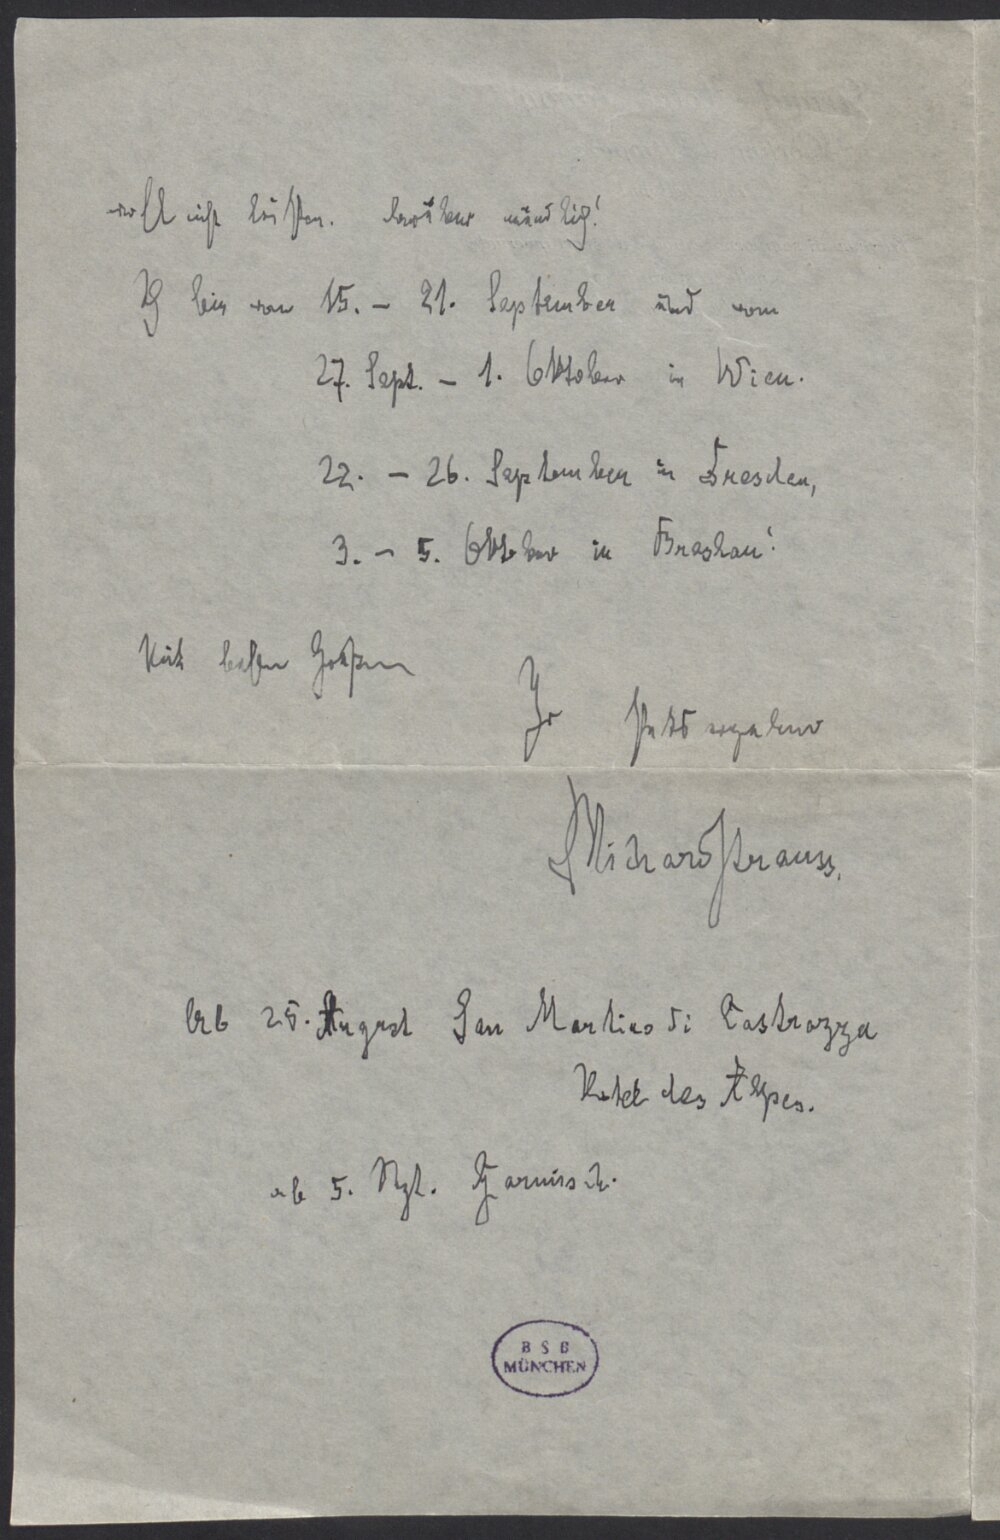 wohl nicht leisten. Darüber mündlich!
Ich bin von 15. – 21. September und vom
27. Sept. – 1. Oktober in Wien.
22. – 26. September in Dresden,
3. – 5. Oktober in Breslau!
Mit besten Grüßen
Ihr stets ergebener
Richard Strauss.
Ab 25. August San Martino di Castrozza
Hotel des Alpes.
ab 5. Spt. Garmisch.
B S B
MÜNCHEN